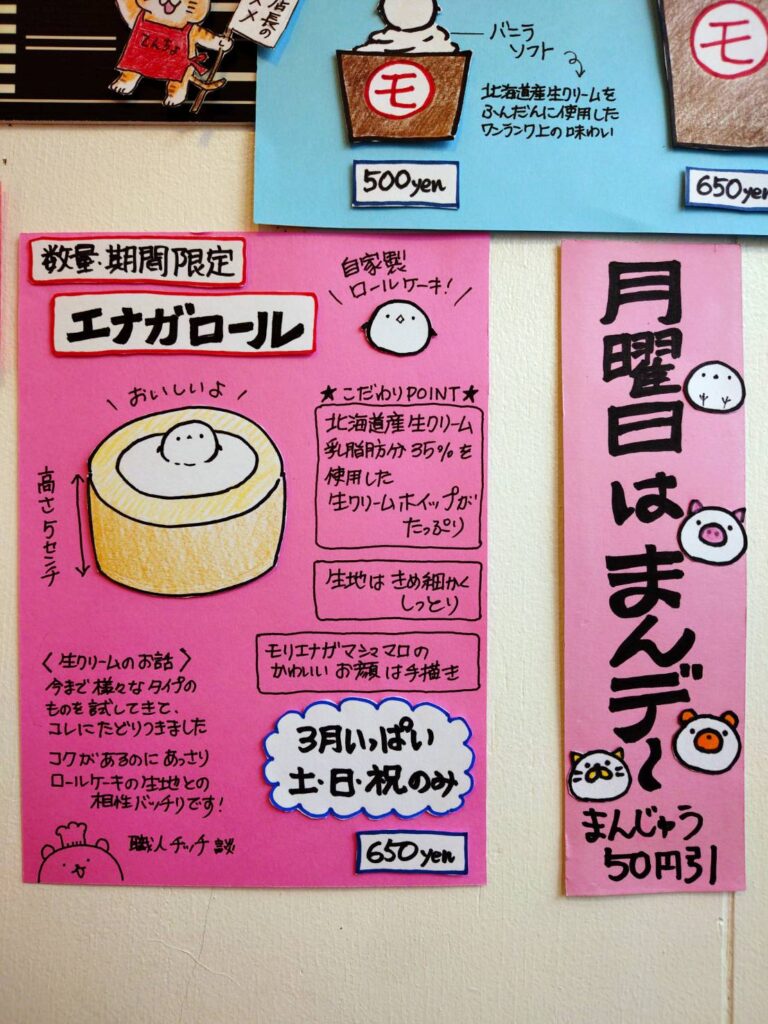 てんちょ
店長の
スメ
バニラ
ソフト
モ
北海道産生クリームを
ふんだんに使用した
ワンランク上の味わい
500yen
モ
650yen
数量・期間限定
エナガロール
自家製
ロールケーキ!
おいしいよ
高さ5センチ
★こだわりPOINT★
北海道産生クリーム
乳脂肪分35%を
使用した
生クリームホイップが
たっぷり
生地はきめ細かく
しっとり
モリエナガマシュマロの
かわいいお顔は手描き
〈生クリームのお話〉
今まで様々なタイプの
ものを試してきて、
コレにたどりつきました
コクがあるのにあっさり
ロールケーキの生地との
相性バッチリです!
職人チッチ談
3月いっぱい
土・日・祝のみ
650yen
月曜日はまんデ〜
まんじゅう
50円引